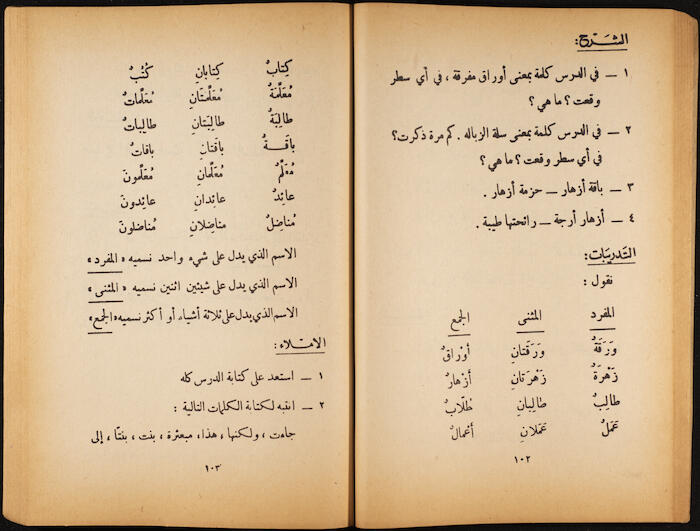 الشرح:
١ — في الدرس كلمة بمعنى أوراق مفرقة ، في أي سطر
وقعت ؟ ما هي ؟
٢ — في الدرس كلمة بمعنى سلة الزباله . كم مرة ذكرت ؟
في أي سطر وقعت ؟ ما هي ؟
٣ — باقة أزهار — حزمة أزهار .
٤ — أزهار أرجة — رائحتها طيبة .
التدريبات:
نقول :
المفرد المثنى الجمع
وَرَقَةٌ وَرَقَتانِ أَوْراقٌ
زَهْرَةٌ زَهْرَتانِ أَزْهارٌ
طالِبٌ طالِبانِ طُلّابٌ
عَمَلٌ عَمَلانِ أَعْمالٌ
١٠٢
كِتابٌ كِتابانِ كُتُبٌ
مُعَلِّمَةٌ مُعَلِّمَتانِ مُعَلِّماتٌ
طالِبَةٌ طالِبَتانِ طالِباتٌ
باقَةٌ باقَتانِ باقاتٌ
مُعَلِّمٌ مُعَلِّمانِ مُعَلِّمونَ
عائِدٌ عائِدانِ عائِدونَ
مُناضِلٌ مناضِلانِ مُناضِلونَ
الاسم الذي يدل على شيء واحد نسميه «المفرد»
الاسم الذي يدل على شيئين اثنين نسميه «المثنى»
الاسم الذي يدل على ثلاثة أشياء أو أكثر نسميه «الجمع»
الاملاء :
١ — استعد على كتابة الدرس كله
٢ — انتبه لكتابة الكلمات التالية :
جاءت ، ولكنها ، هذا ، مبعثرة ، بنت ، بنتا ، إلى
١٠٣